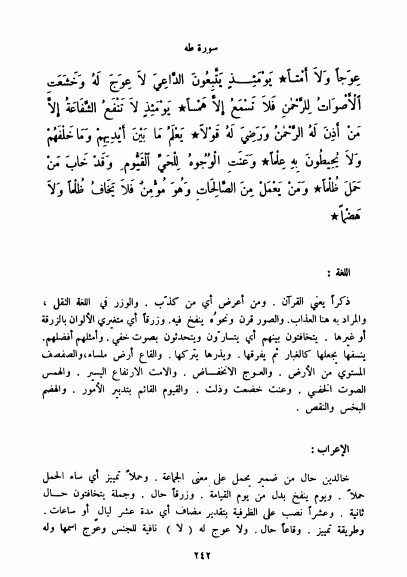 سورة طه
عِوَجاً وَلَا أَمْتاً* يَوْمَئِذٍ يَتَّبِعُونَ الدَّاعِيَ لَا عِوَجَ لَهُ وَخَشَعَتِ
الْأَصْوَاتُ لِلرَّحْمٰنِ فَلَا تَسْمَعُ إِلَّا هَمْساً* يَوْمَئِذٍ لَا تَنْفَعُ الشَّفَاعَةُ إِلَّا
مَنْ أَذِنَ لَهُ الرَّحْمٰنُ وَرَضِيَ لَهُ قَوْلاً* يَعْلَمُ مَا بَيْنَ أَيْدِيهِمْ وَمَا خَلْفَهُمْ
وَلَا يُحِيطُونَ بِهِ عِلْماً* وَعَنَتِ الْوُجُوهُ لِلْحَيِّ الْقَيُّومِ وَقَدْ خَابَ مَنْ
حَمَلَ ظُلْماً* وَمَنْ يَعْمَلْ مِنَ الصَّالِحَاتِ وَهُوَ مُؤْمِنٌ فَلَا يَخَافُ ظُلْماً وَلَا
هَضْماً*
اللغة :
ذكراً يعني القرآن . ومن أعرض أي من كذّب . والوزر في اللغة الثقل ،
والمراد به هنا العذاب. والصور قرن ونحوُه ينفخ فيه. وزرقاً أي متغيري الألوان بالزرقة
أو غيرها . يتخافتون بينهم أي يتسارّون ويتحدثون بصوت خفي. وأمثلهم أفضلهم.
ينسفها يجعلها كالغبار ثم يفرقها . ويذرها يتركها . والقاع أرض ملساء، والصفصف
المستوي من الأرض . والعوج الانخفاض . والامت الارتفاع اليسير . والهمس
الصوت الخفي . وعنت خضعت وذلت . والقيوم القائم بتدبير الأمور . والهضم
البخس والنقص .
الإعراب :
خالدين حال من ضمير يحمل على معنى الجماعة . وحملاً تمييز أي ساء الحمل
حملاً . ويوم ينفخ بدل من يوم القيامة . وزرقاً حال . وجملة يتخافتون حال
ثانية . وعشراً نصب على الظرفية بتقدير مضاف أي مدة عشر ليال أو ساعات .
وطريقة تمييز . وقاعاً حال . ولا عوج له ( لا ) نافية للجنس وعوج اسمها وله
٢٤٢